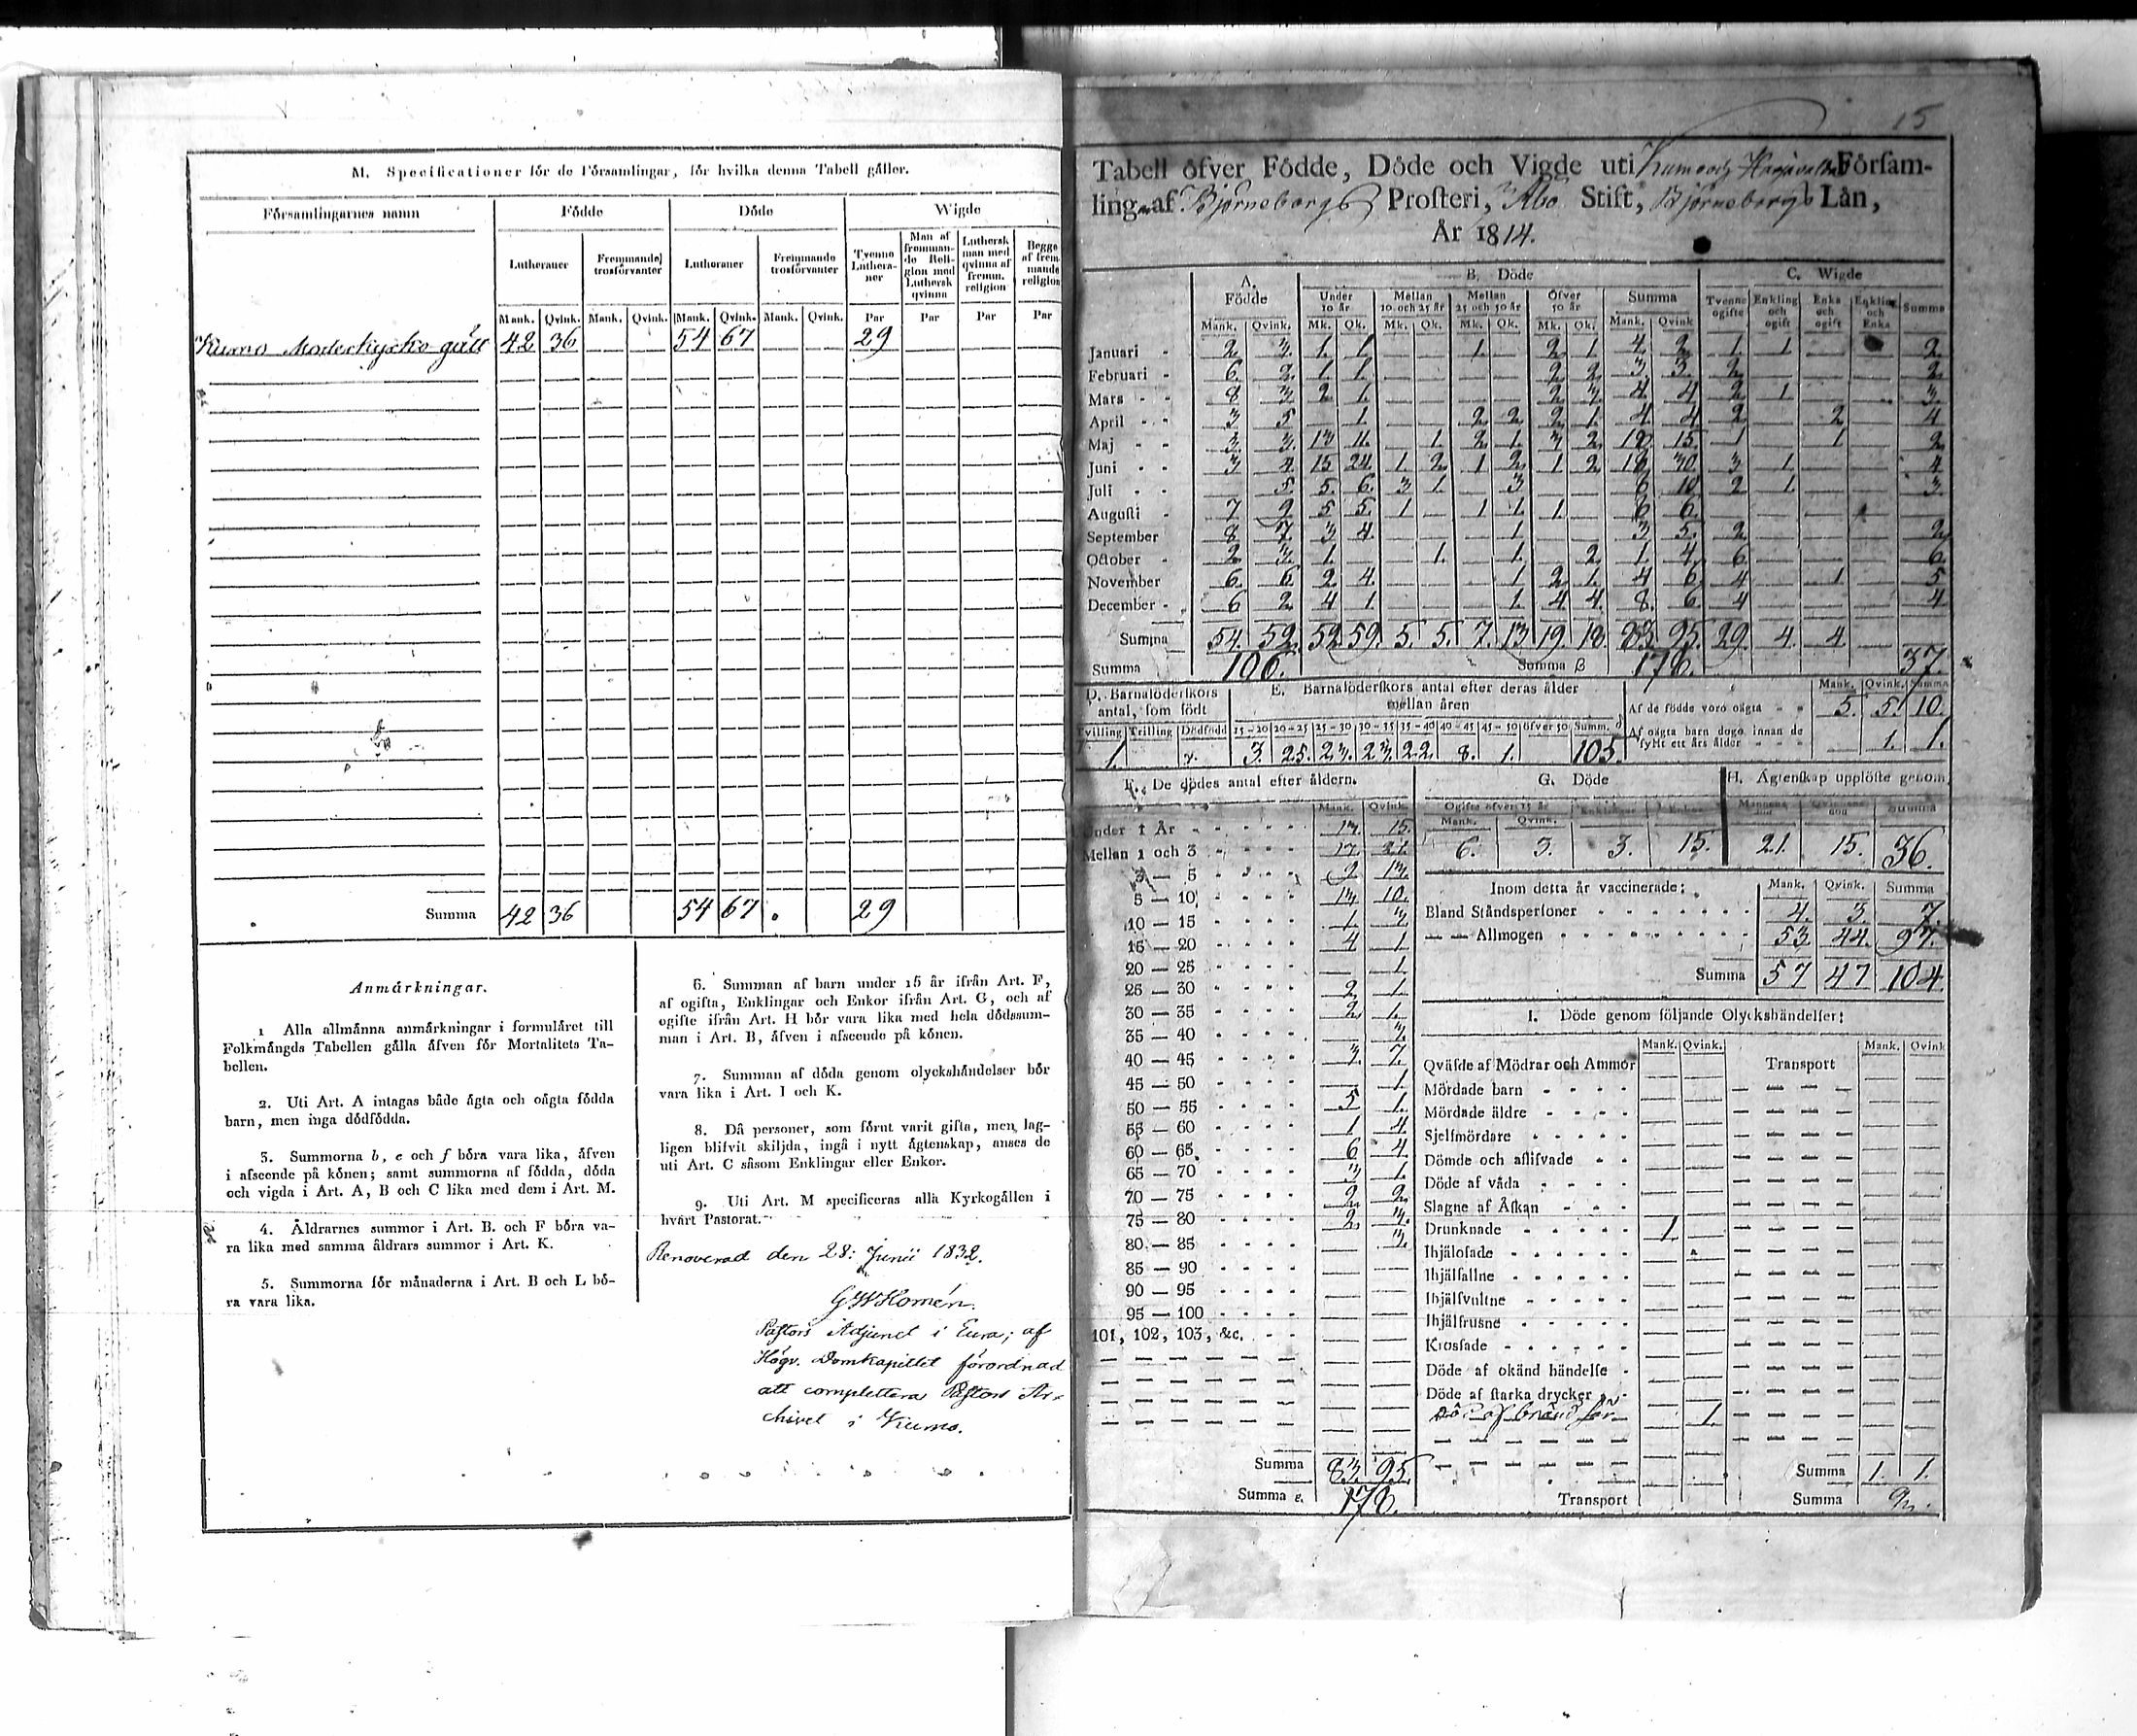 M. Specificationer för de Församlingar, för hvilka denna Tabell gäller.
Församlingarnes namn Födde Döde Wigde
Lutheraner Fremmande trosförvanter Lutheraner Fremmande trosförvanter Tvenne Lutheraner Man af fremmande Religion med Luthersk qvinna Luthersk man med qvinna af fremm. religion Begge af fremmande religion
Mank. Qvink. Mank. Qvink. Mank. Qvink. Mank. Qvink. Par Par Par Par
Kumo Moderkyrko gäll 42 36 54 67 29
Summa 42 36 54 67 29
Anmärkningar.
1 Alla allmänna anmärkningar i formuläret till
Folkmängds Tabellen gälla äfven för Mortalitets Ta-
bellen.
2. Uti Art. A intagas både ägta och oägta födda
barn, men inga dödfödda.
3. Summorna b, e och f böra vara lika, äfven
i afseende på könen; samt summorna af födda, döda
och vigda i Art. A, B och C lika med dem i Art. M.
4. Åldrarnes summor i Art. B. och F böra va-
ra lika med samma åldrars summor i Art. K.
5. Summorna för månaderna i Art. B och L bö-
ra vara lika.
6. Summan af barn under 15 år ifrån Art. F,
af ogifta, Enklingar och Enkor ifrån Art. G, och af
ogifte ifrån Art. H bör vara lika med hela dödssum-
man i Art. B, äfven i afseende på könen.
7. Summan af döda genom olyckshändelser bör
vara lika i Art. I och K.
8. Då personer, som förut varit gifta, men lag-
ligen blifvit skiljda, ingå i nytt ägtenskap, anses de
uti Art. C såsom Enklingar eller Enkor.
9. Uti Art. M specificeras alla Kyrkogällen i
hvart Pastorat.
Renoverad den 28: Junii 1832.
G W Homén.
Pastors Adjunct i Eura, af
Högv. Domkapitlet förordnad
att complettera Pastors Ar-
chivet i Kumo.
15
Tabell öfver Födde, Döde och Vigde uti Kumo och Harjavalta Försam-
ling af Björneborgs Prosteri, Åbo Stift, Björneborgs Län,
År 1814.
A. Födde B. Döde C. Wigde
Under 10 år Mellan 10 och 25 år Mellan 25 och 50 år Öfver 50 år Summa Tvenne ogifte Enkling och ogift Enka och ogift Enkling och Enka Summa
Mank. Qvink. Mk. Qk. Mk. Qk. Mk. Qk. Mk. Qk. Mank. Qvink
Januari 2 3 1 1 1 2 1 4 2 1 1 2
Februari 6 2 1 1 2 2 3 3 2 2
Mars 8 3 2 1 2 3 4 4 2 1 3
April 3 5 1 2 2 2 1 4 4 2 2 4
Maj 3 3 13 11 1 2 1 3 2 18 15 1 1 2
Juni 3 4 15 24 1 2 1 2 1 2 18 30 3 1 4
Juli 5 5 6 3 1 3 8 10 2 1 3
Augusti 7 9 5 5 1 1 1 1 8 6
September 8 7 3 4 1 3 5 2 2
October 2 3 1 1 1 2 1 4 6 6
November 6 6 2 4 1 2 1 4 6 4 1 5
December 6 2 4 1 1 4 4 8 6 4 4
Summa 54 52 52 59 5 5 7 13 19 18 83 95 29 4 4
Summa 106. Summa B 178. 37.
D. Barnaföderskors antal, som födt
Tvilling Trilling Dödfödd
1. 3.
E. Barnaföderskors antal efter deras ålder mellan åren
15-20 20-25 25-30 30-35 35-40 40-45 45-50 öfver 50 Summ.
3. 25. 23. 23. 22. 8. 1. 105.
Mank. Qvink. Summa
Af de födde voro oägta 5. 5. 10.
Af oägta barn dogo innan de fyllt ett års ålder 1. 1.
F. De dödes antal efter åldern.
Mank. Qvink.
Under 1 År 13. 15.
Mellan 1 och 3 17. 21.
3 — 5 9 13.
5 — 10 13 10.
10 — 15 1. 3.
15 — 20 4 1
20 — 25 1.
25 — 30 2 1.
30 — 35 2 1.
35 — 40 3.
40 — 45 3. 7.
45 — 50 1
50 — 55 5 1.
55 — 60 1 4
60 — 65 6 4
65 — 70 3 1.
70 — 75 2 2
75 — 80 2 3.
80 — 85 3.
85 — 90
90 — 95
95 — 100
101, 102, 103, &c.
Summa 83. 95.
Summa e. 178.
G. Döde
Ogifte öfver 15 år Enklingar Enkor
Mank. Qvink.
6. 3. 3. 15.
H. Ägtenskap upplöste genom
Mannens död Qvinnans död Summa
21. 15. 36.
Inom detta år vaccinerade: Mank. Qvink. Summa
Bland Ståndspersoner 4. 3. 7.
— — Allmogen 53 44. 97.
Summa 57 47 104.
I. Döde genom följande Olyckshändelser:
Mank. Qvink. Mank. Qvink
Qväfde af Mödrar och Ammor Transport
Mördade barn
Mördade äldre
Sjelfmördare
Dömde och aflifvade
Döde af våda
Slagne af Åskan
Drunknade 1.
Ihjälofade
Ihjälfallne
Ihjälfvultne
Ihjälfrusne
Krossade
Döde af okänd händelse
Döde af starka drycker
1.
Summa 1. 1.
Transport Summa 2.